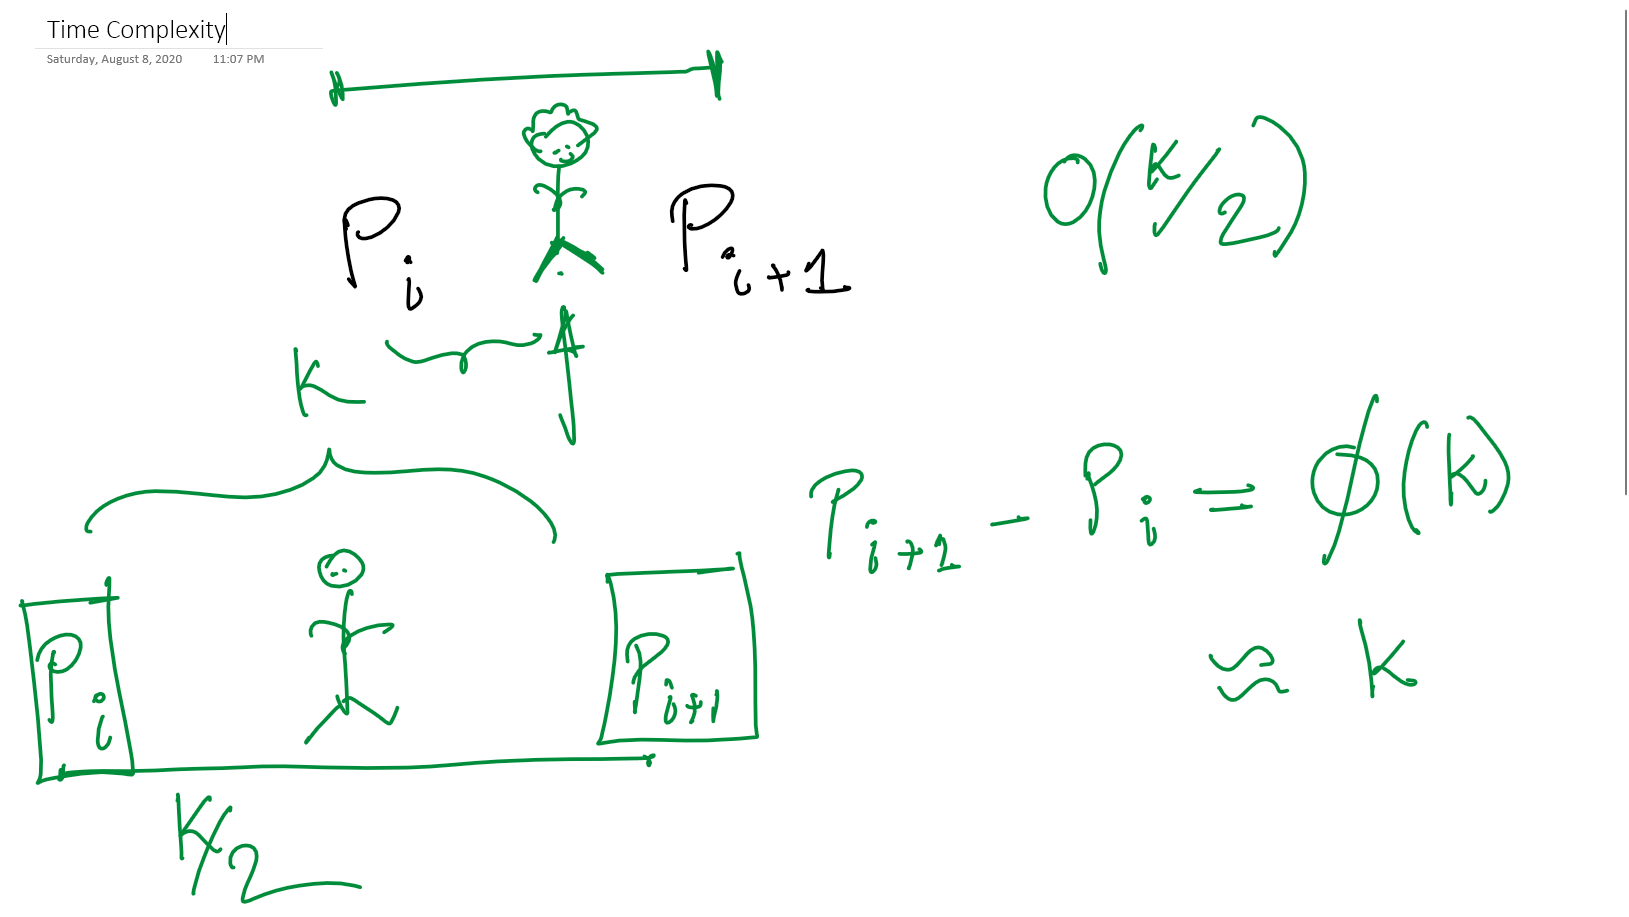 Time Complexity
Saturday, August 8, 2020 11:07 PM
P i
P i+1
O(K/2)
K
P i+1 - P i = ϕ(k)
≈ k
P i
P i+1
K/2